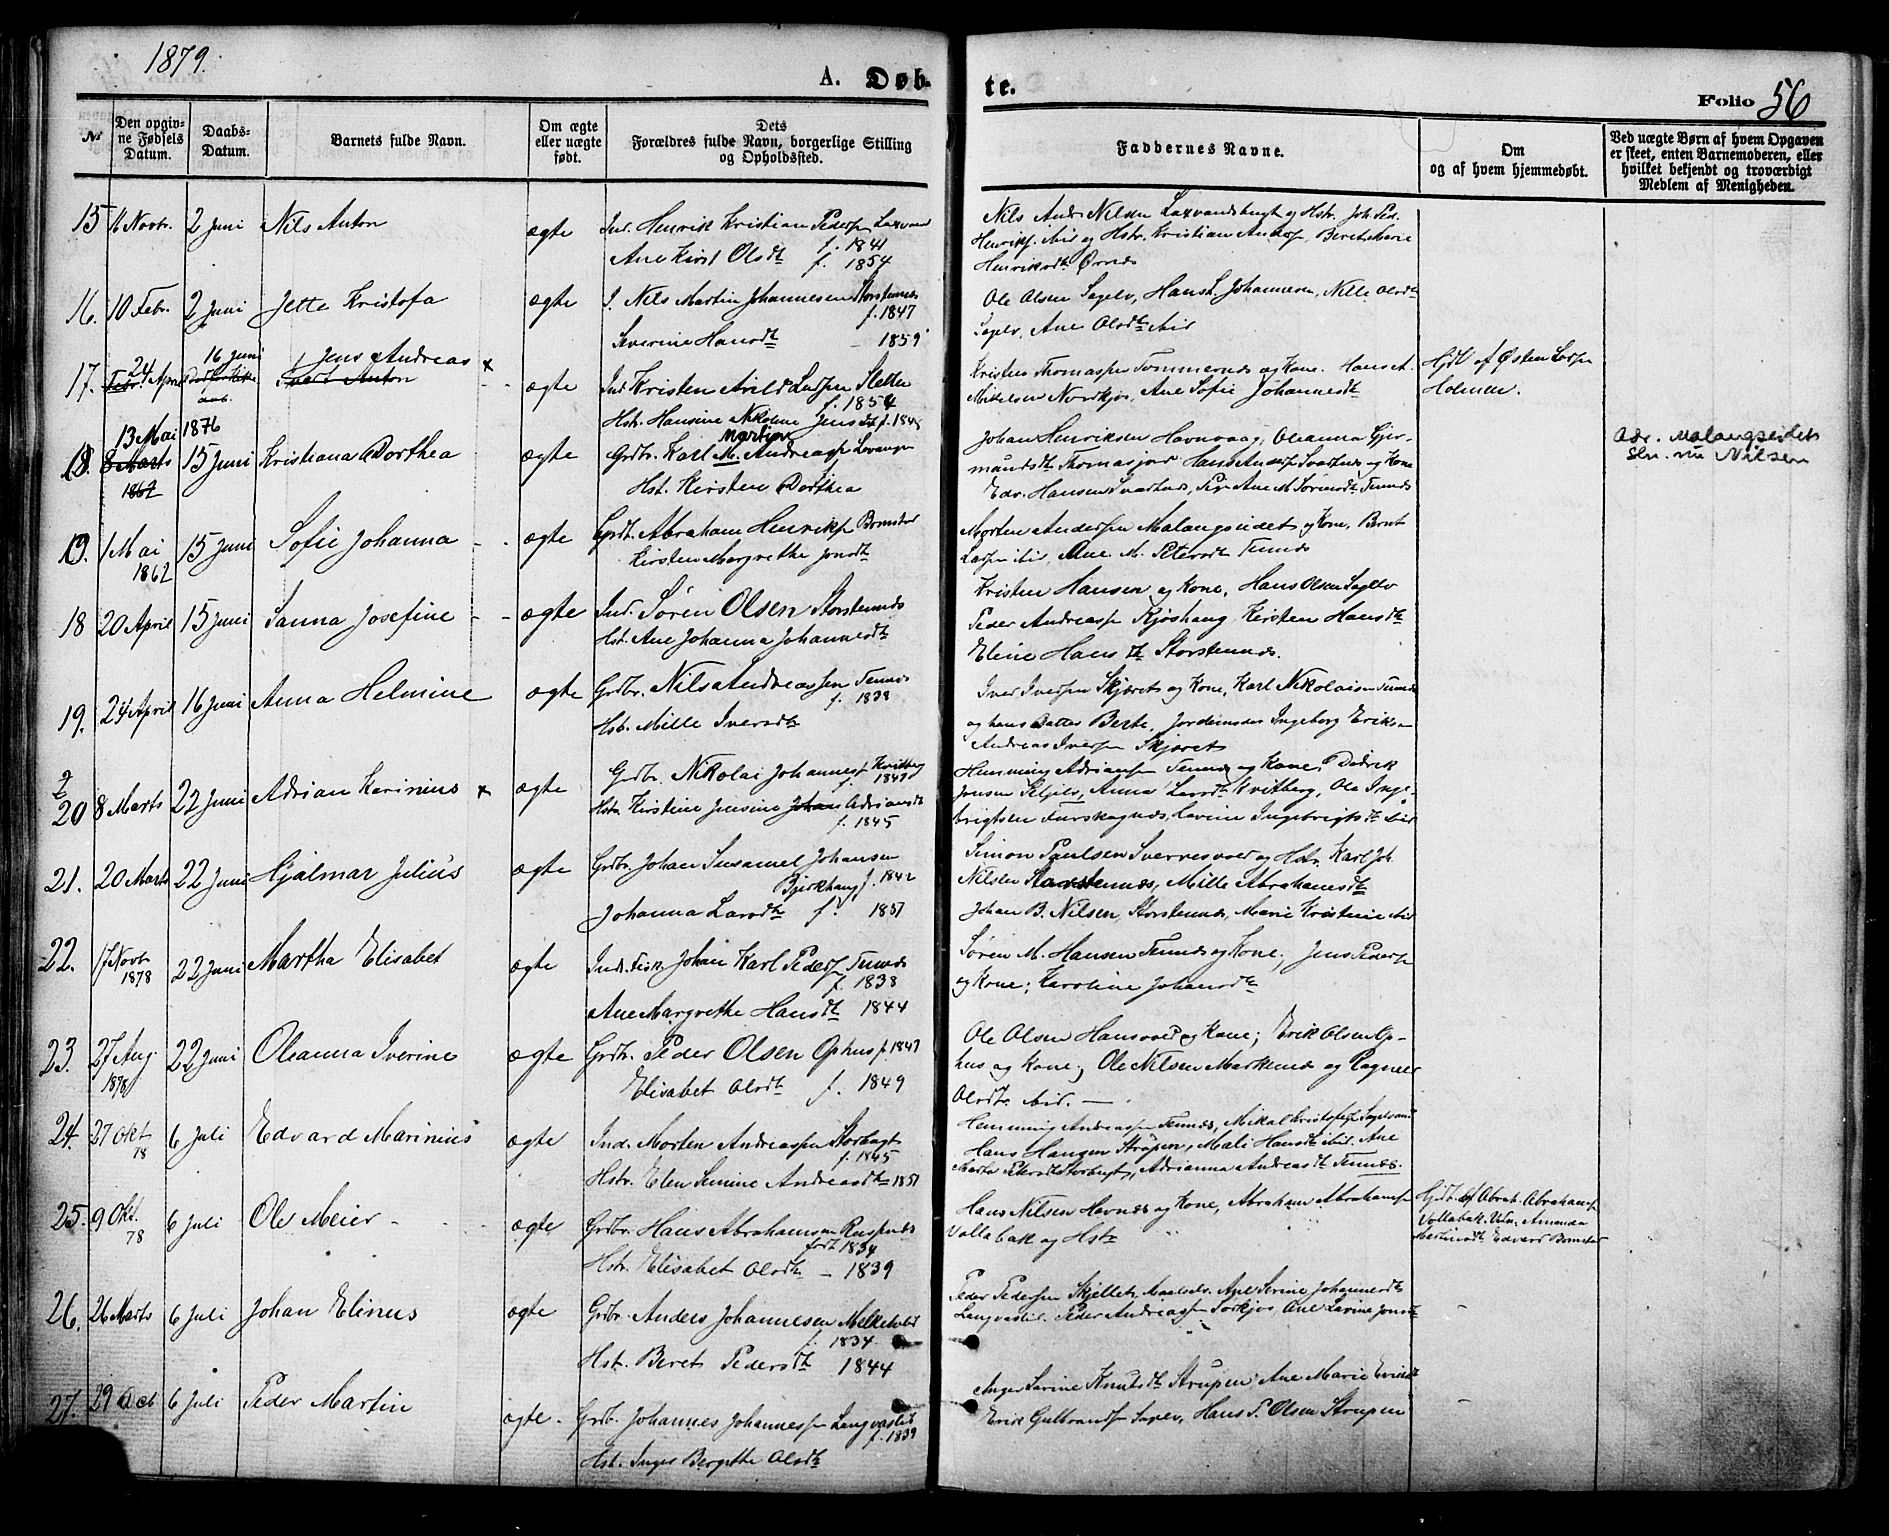 1879.
A. Døb-
te.
Folio 56
No
Den opgiv-
ne Fødsels
Datum.
Daabs-
Datum.
Barnets fulde Navn.
Om ægte
eller uægte
født.
Dets
Forældres fulde Navn, borgerlige Stilling
og Opholdssted.
Faddernes Navne.
Om
og af hvem hjemmedøbt.
Ved uægte Børn af hvem Opgaven
er skeet, enten Barnemoderen, eller
hvilket bekjendt og troværdigt
Medlem af Menigheden.
15 16 Novbr. 2 Juni Nils Anton ægte Ind. Henrik Kristian Peders
f. 1841
Ane Kirst Olsdt f. 1854
Nils Andr Nilsen Laxvandbugt og Hstr. Joh. Ped.
Henriks. ibid og Hstr. Kristian Anders, Beret Marie
Henriksdt Ørnes
16. 10 Febr. 2 Juni Jette Kristofa ægte I. Nils Martin Johannesen Storstennes
f. 1847
Severine Hansdt - 1859
Ole Olsen Sagelv, Hans L. Johannesen, Nille Olsdt
Sagelv, Ane Olsdt ibid
17. 24 April 16 Juni Jens Andreas x
Anton
ægte Ind Kristen Arild Lars Sletten
f. 1854
Hst. Hansine Nikoline Jensdt f. 1848
Kristen Thomas Tommernes og Kone. Hans A.
Mikelsen Nordkjos, Ane Sofie Johannesdt
Hjdb af Østen Lars
Holmen.
13 Mai 1876
18. 8 Marts 15 Juni Kristiana Dorthea ægte Grdbr. Karl M. Andreas Levangen
Martin
1862
Hst. Kirsten Dorthea
Johan Henriksen Havnvaag, Oleanna Gjer-
mundsdt Thomasjord Hans Anders Svartnes og Kone
Edv. Hansen Svartnes, Pige Ane M Sørensdt Tennes
Adr. Malangseidet
Sln. nu Nilsen
19. 1 Mai 15 Juni Sofie Johanna - - ægte Grdb. Abraham Henriks Bomstad
1862
Kirsten Margrethe Jonsdt
Morten Anders Malangseidet, og Kone, Bernt
Lars ibid, Ane M. Petersdt Tennes
18 20 April 15 Juni Sanna Josefine - - ægte Ind. Søren Olsen Storstennes
Hst. Ane Johanna Johannesdt
Kristen Hansen og Kone, Hans Olsen Sagelv
Peder Andreas Kjoshaug Kirsten Hansdt
Eline Hansdt Storstennes.
19. 24 April 16 Juni Anna Helmine ægte Grdbr. Nils Andreassen Tennes
f. 1838
Hstr. Mille Iversdt
Iver Ivers Skjæret og Kone, Karl Nikolaisen Tennes
og hans Datter Berte, Jordemoder Ingeborg Eriksen
Andreas Ivers Skjæret
20 8 Marts 22 Juni Adrian Karinius x ægte Grdbr. Nikolai Johannes Kvitberg
f. 1849
Hstr Kirstine Jensine Adriansdt
f. 1845
Hemming Adrians Tennes og Kone, Didrik
Jensen Seljelv, Anna Larsdt Kvitberg, Ole Inge-
brigtsen Furskognes, Lavine Ingebrigtsdt ibid
21. 20 Marts 22 Juni Hjalmar Julius ægte Grdbr. Johan Susamel Johansen
Bjerkhaug f. 1842
Johanna Larsdt f. 1851
Simon Paulsen og Hstr, Karl Joh.
Nilsen Storstennes, Mille Abrahamsdt
Johan B. Nilsen, Storstennes, Marie Kristine ibid
22. 17 Novb. 22 Juni Martha Elisabet ægte Ind. Fisk. Johan Karl Peders Tennes
1878
f. 1838
Ane Margrethe Hansdt 1844
Søren M. Hansen Tennes og Kone; Jens Peders
og Kone; Karoline Johansdt
23. 27 Aug. 22 Juni Oleanna Iverine ægte Grdbr. Peder Olsen Ophus f. 1847
1878
Elisabet Olsdt f. 1849
Ole Olsen Hansvold og Kone; Erik Olsen Op-
hus og Kone; Ole Nilsen Markenes og Ragnel
Olsdt ibid. -
24. 27 Okt 6 Juli Edvard Marinius ægte Ind. Morten Andreas Storbugt
78
f. 1845
Hstr. Elen Semine Andreasdt 1851
Hemming Andreas Tennes, Mikal Kristofers Sagelvand
Hans Hansen Strupen, Mali Hansdt ibid. Ane
Marta Petersdt Storbugt, Adrianna Andreasdt Tennes.
25. 9 Okt. 6 Juli Ole Meier - - ægte Grdbr. Hans Abrahamsen Russenes
78
født 1834
Hstr. Elisabet Olsdt - 1839
Hans Nilsen Havnnes og Kone, Abraham Abrahams
Vollabak og Hstr
Hjdb. af Abrah. Abrahams
Vollabak. Vidn. Amanda
Martinsdt Edvard Bomstad
26. 26 Marts 6 Juli Johan Elinus ægte Grdbr. Anders Johannesen Melkelvlid
f. 1834
Hst. Beret Pedersdt 1844
Peder Peders Skjellet, Maalselv. Ane Serine Johannesdt
Langvaslid. Peder Andreas Sørkjos, Ane Lavine Jonsdt
-
27. 29 Oct 6 Juli Peder Martin ægte. Grdbr. Johannes Johannes Langvaslid
f. 1839
Hst. Inger Bergitte Olsdt
Inger Sarine Knutsdt Strupen; Ane Marie Evinsdt
Erik Gulbrands Sagelv, Hans P. Olsen Strupen
-